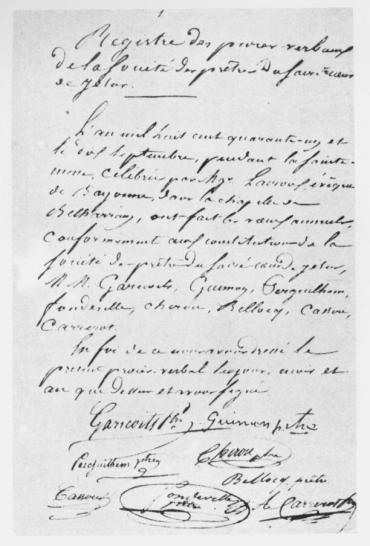 Registre des procès verbaux
de la Société des prêtres du Sacré cœur
de Jésus.
L'an mil huit cent quarante-un et
le dix septembre, pendant la sainte
messe, célébrée par Mgr Lacroix évêque
de Bayonne, dans la chapelle de
Betharram, ont fait les vœux annuels,
conformément aux constitutions de la
Société des prêtres du Sacré cœur de Jésus,
M.M. Garicoïts, Guimon, Perguilhem,
Fondeville, Chirou, Bellocq, Cassou,
Carrerot.
En foi de ce nous avons dressé le
présent procès-verbal les jour, mois et
an que dessus et avons signé.
Garicoits Ptre, Guimon ptre
Perguilhem ptre Chirou ptre
Bellocq prêtre
Cassou Fondeville prêtre Carrerot